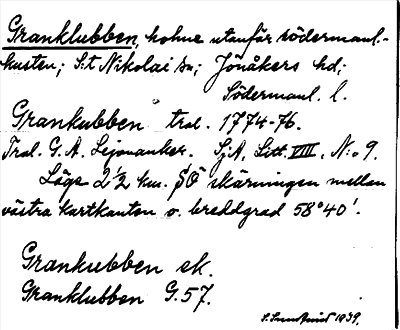 Granklubben, holme utanför södermanl.-
kusten; S:t Nikolai sn; Jönåkers hd;
Södermanl. l.
Grankubben tral. 1774-76.
Tral. G. A. Lejonanker. SjA, Litt. VIII, N:o 9.
Läge 2 1/2 km. SÖ skärningen mellan
västra kartkanten o. breddgrad 58°40'.
Grankubben ek.
Granklubben G.57.
1939.